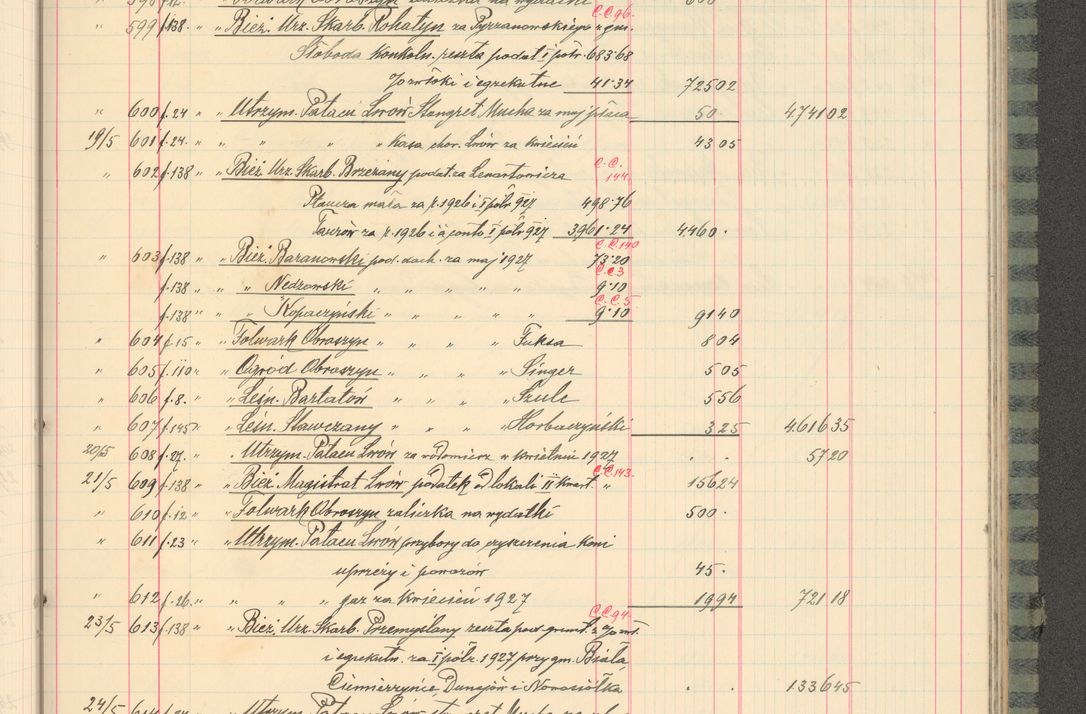 C.C.96.
" 599 f.138 " " Bież. Urz. Skarb. Rohatyn za Pyrzanowskiego z gm.
Słoboda Konkoln. reszta podat I półr. 683·68
zwłoki i egzekutne 41·34 725 02
" 600 f.24 " " Utrzym. Pałacu Lwów Stangret Mucha za maj płaca 50· 4.741 02
19/5 601 f.24 " " " " " Kasa chor. Lwów za kwiecień 43 05
C.C. 144.
" 602 f.138 " " Bież. Urz. Skarb. Brzeżany podat. za Lenartowicza
Płaucza mała za r. 1926 i I półr 927 498·76
Taurów za r. 1926 i à conto I półr 927 3961·24 4.460·
C.C.140
" 603 f.138 " " Bież. Baranowski pod. doch. za maj 1927 73·20
C.C.3
f.138 " " " Nedzowski " " " " 9·10
C.C.5
f.138 " " " Kopaczyński " " " " " 9·10 91 40
" 604 f.15 " " Folwark Obroszyn " " " Fuksa 8 04
" 605 f.110 " " Ogród Obroszyn " " " " Singer 5 05
" 606 f.8. " " Leśn. Bartatów " " " " Szulc 5 56
" 607 f.145 " " Leśn. Stawczany " " " " Horbaczyński 3 25 4.616 35
20/5 608 f.27. " Utrzym. Pałacu Lwów za wodomierz w kwietniu 1927 · · 57 20
C.C.143.
21/5 609 f.138 " " Bież. Magistrat Lwów podatek od lokali II kwart. " 156 24
" 610 f.12 " " Folwark Obroszyn zaliczka na wydatki 500·
" 611 f.23 " " Utrzym. Pałacu Lwów przybory do czyszczenia koni
uprzęży i powozów 45·
" 612 f.26. " " " " gaz za Kwiecień 1927 19 94 721 18
C.C.94.
23/5 613 f.138 " Bież. Urz. Skarb. Przemyślany reszta pod. grunt. z
i egzekutn. za I półr. 1927 przy gm. Biała
Ciemierzyńce, Dunajów i Nowosiółka · · 1336 45
24/5 Utrzym. Mucha